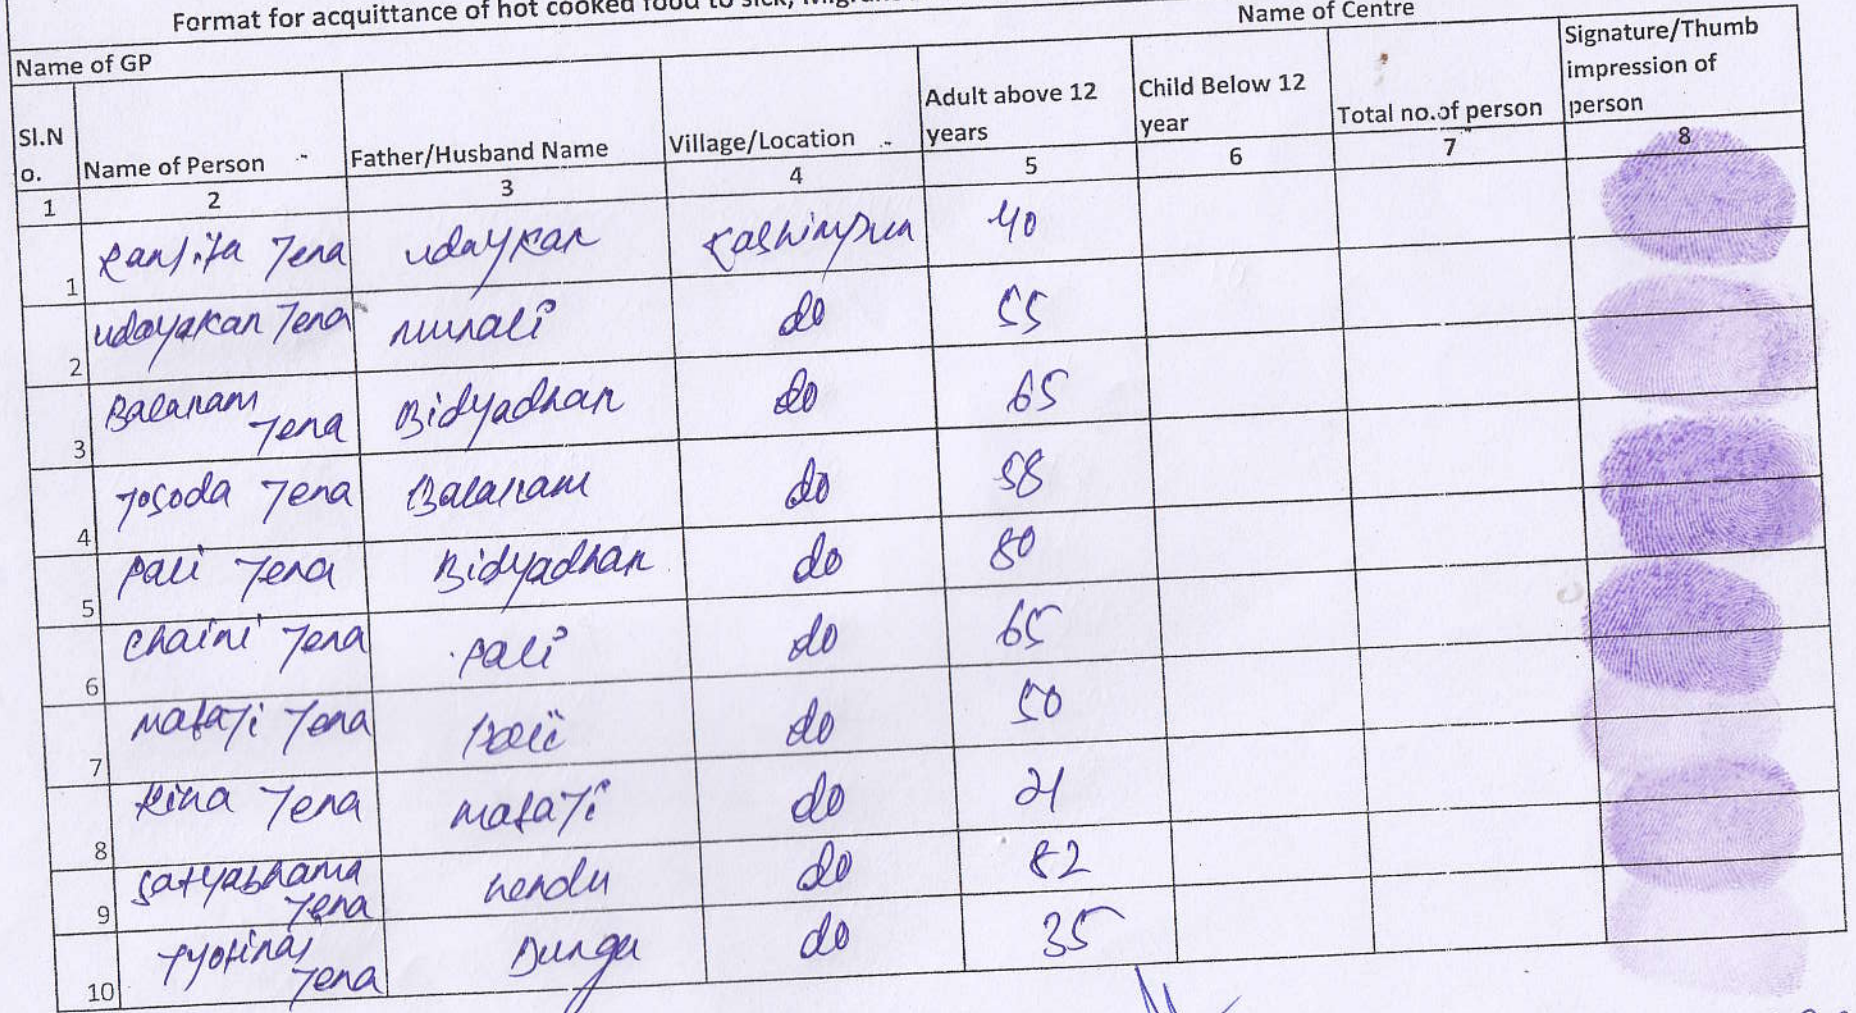 Format for acquittance of hot cooked food to sick,
Name of GP Name of Centre
Sl.No. Name of Person Father/Husband Name Village/Location Adult above 12 years Child Below 12 year Total no.of person Signature/Thumb impression of person
1 2 3 4 5 6 7 8
1 Jena udaykar 40
2 udayakar Jena murali do 55
3 Balaram Jena Bidyadhar do 65
4 Josoda Jena Balaram do 58
5 pali Jena Bidyadhar do 80
6 chaini Jena pali do 65
7 Jena pali do 50
8 Jena do 21
9 satyabhama Jena do 82
10 Jena Durga do 35